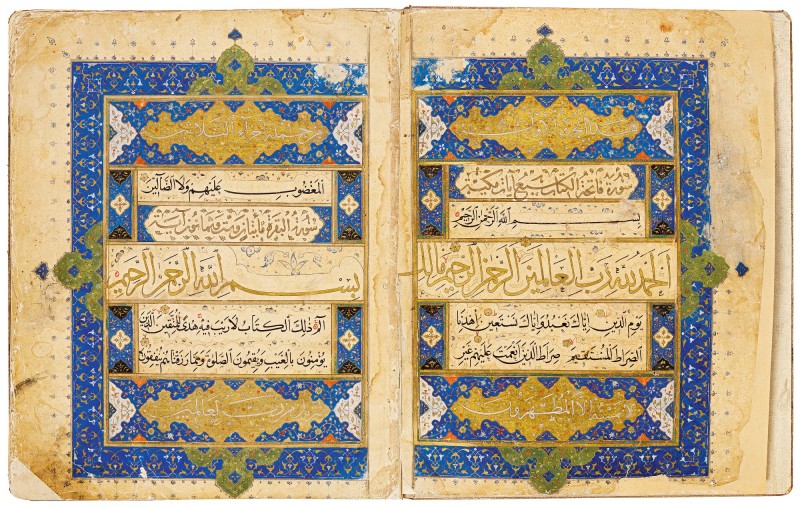 الجزء الاول
سورة فاتحة الكتاب سبع آيات مكية
بسم الله الرحمن الرحيم
الحمد لله رب العالمين الرحمن الرحيم مالك
يوم الدين اياك نعبد واياك نستعين اهدنا
الصراط المستقيم صراط الذين انعمت عليهم غير
لا يمسه الا المطهرون
من جملة اجزاء الثلاثين
المغضوب عليهم ولا الضالين
سورة البقرة مائتان
بسم الله الرحمن الرحيم
الم ذلك الكتاب لا ريب فيه هدى للمتقين الذين
يؤمنون بالغيب ويقيمون الصلوة ومما رزقناهم ينفقون
تنزيل من رب العالمين